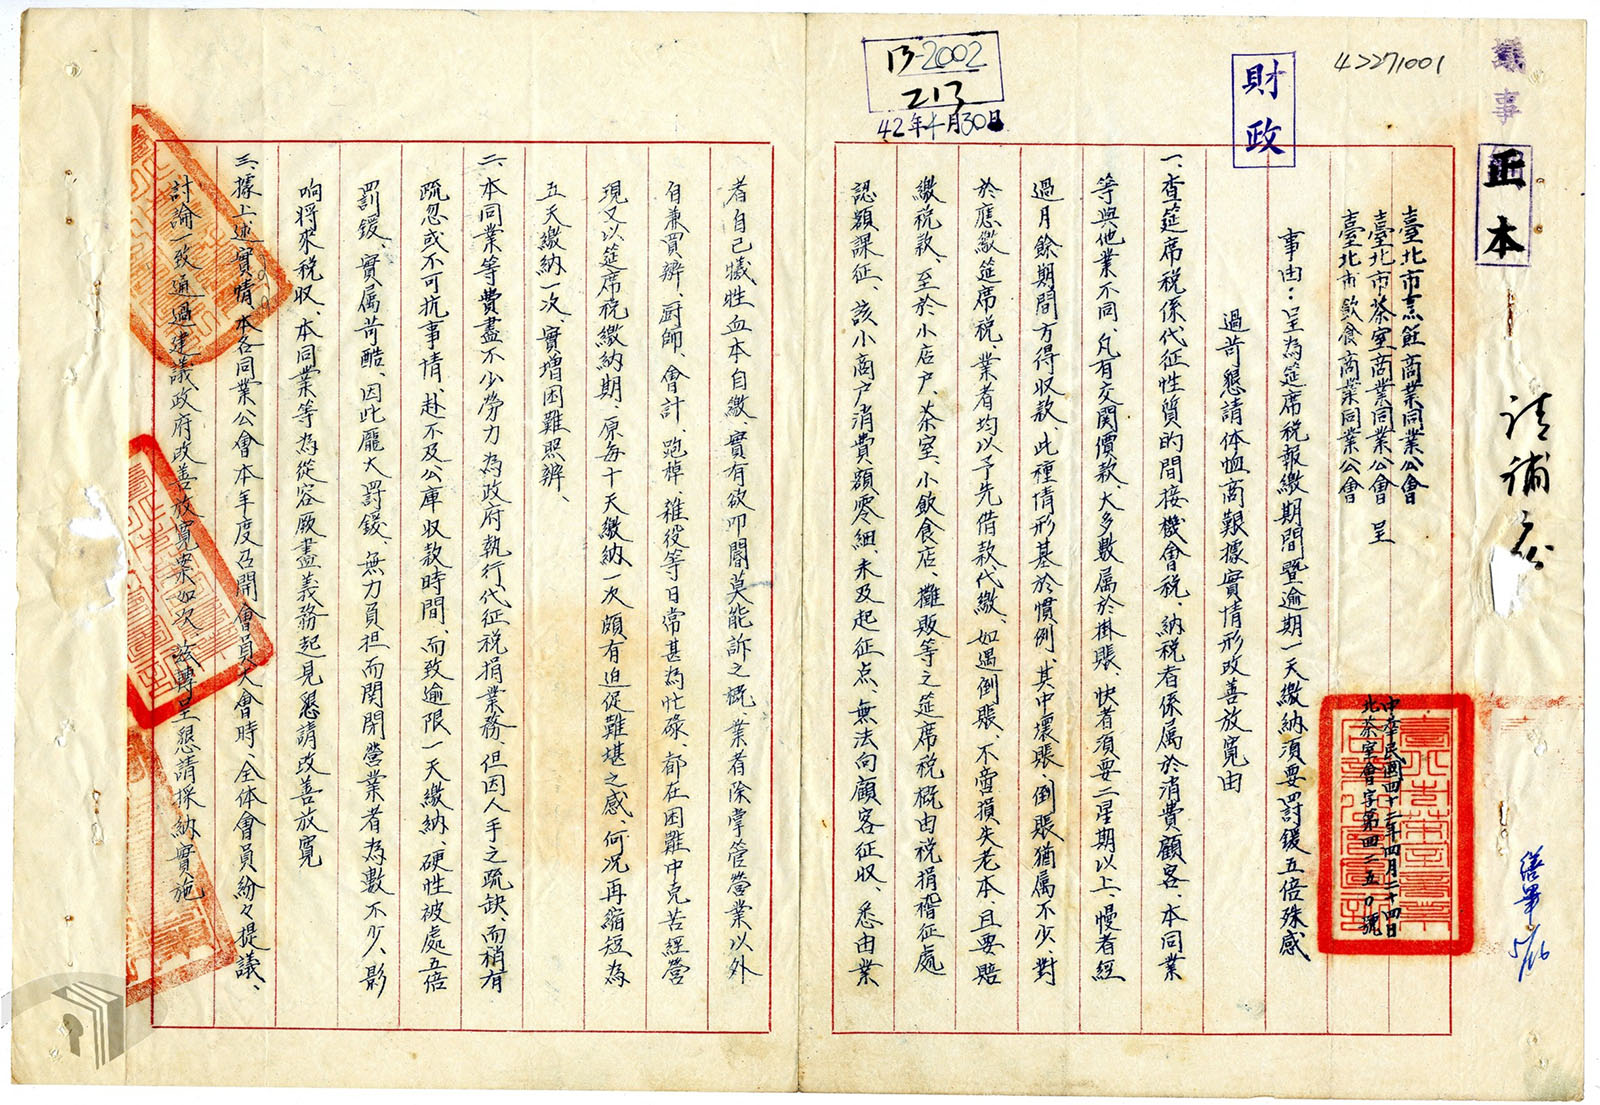 議事
正本
請補
繕畢 5/16
42271001
財政
13-2002
213
42年4月30日
臺北市烹飪商業同業公會
臺北市茶室商業同業公會 呈
臺北市飲食商業同業公會
中華民國四十二年四月二十四日
北茶室會字第四二五0號
事由：呈為筵席稅報繳期間暨逾期一天繳納須要罰鍰五倍殊感
過苛懇請体恤商艱據實情形改善放寬由
一、查筵席稅係代征性質的間接機會稅、納稅者係属於消費顧客、本同業
等與他業不同、凡有交関價款、大多數属於掛賬、快者須要二星期以上、慢者經
過月餘期間方得收款、此種情形基於慣例、其中壞賬、倒賬猶属不少、對
於應繳筵席稅、業者均以予先借款代繳、如遇倒賬、不啻損失老本、且要賠
繳稅款、至於小店户、茶室、小飲食店、攤販等之筵席稅概由稅捐稽征處
認額課征、該小商户消費額零細、未及起征点、無法向顧客征收、悉由業
者自己犧牲血本自繳、實有欲叩閽莫能訴之概、業者除掌管營業以外
自兼買辦、厨師、會計、跑棹、雜役等日常甚為忙碌、都在困難中克苦經營
現又以筵席稅繳納期、原每十天繳納一次頗有迫促難堪之感、何况再縮短為
五天繳納一次、實增困難照辦、
二、本同業等費盡不少勞力為政府執行代征稅捐業務、但因人手之疏缺、而稍有
疏忽或不可抗事情、赴不及公庫收款時間、而致逾限一天繳納、硬性被處五倍
罰鍰、實属苛酷、因此龐大罰鍰、無力負担而関閉營業者為數不少、影
响將來稅收、本同業等為從容厥盡義務起見懇請改善放寬
三、據上述實情、本各同業公會本年度召開會員大會時、全体會員紛々提議、
討論一致通過建議政府改善放寬案如次 茲轉呈懇請採納實施